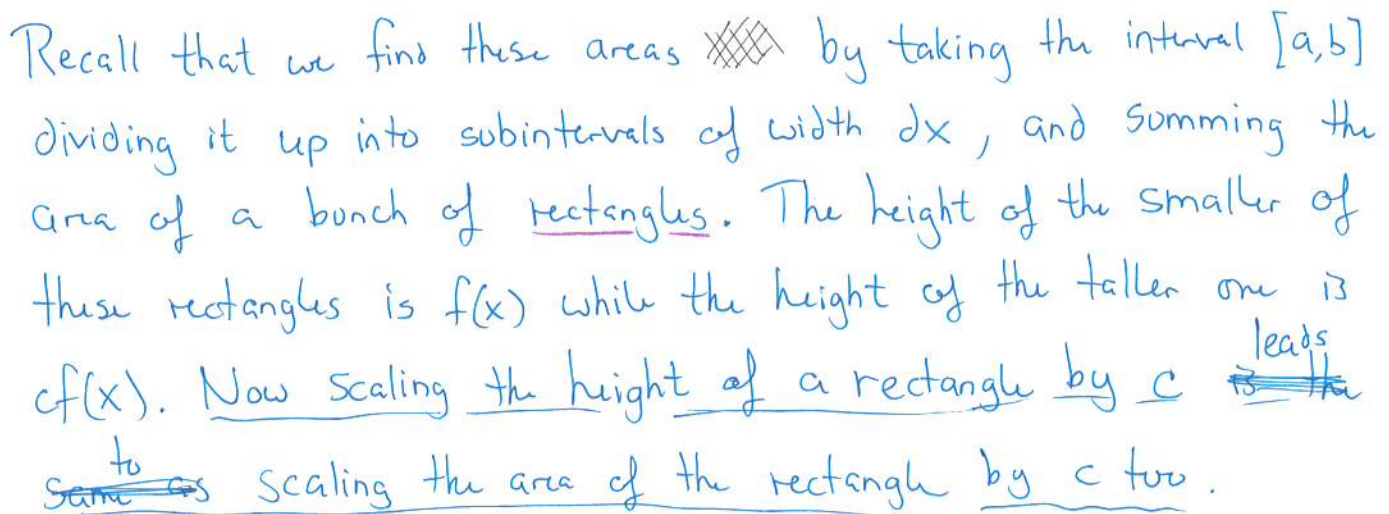 Recall that we find these areas by taking the interval [a,b]
dividing it up into subintervals of width dx, and summing the
area of a bunch of rectangles. The height of the smaller of
these rectangles is f(x) while the height of the taller one is
cf(x). Now scaling the height of a rectangle by c leads
to scaling the area of the rectangle by c too.